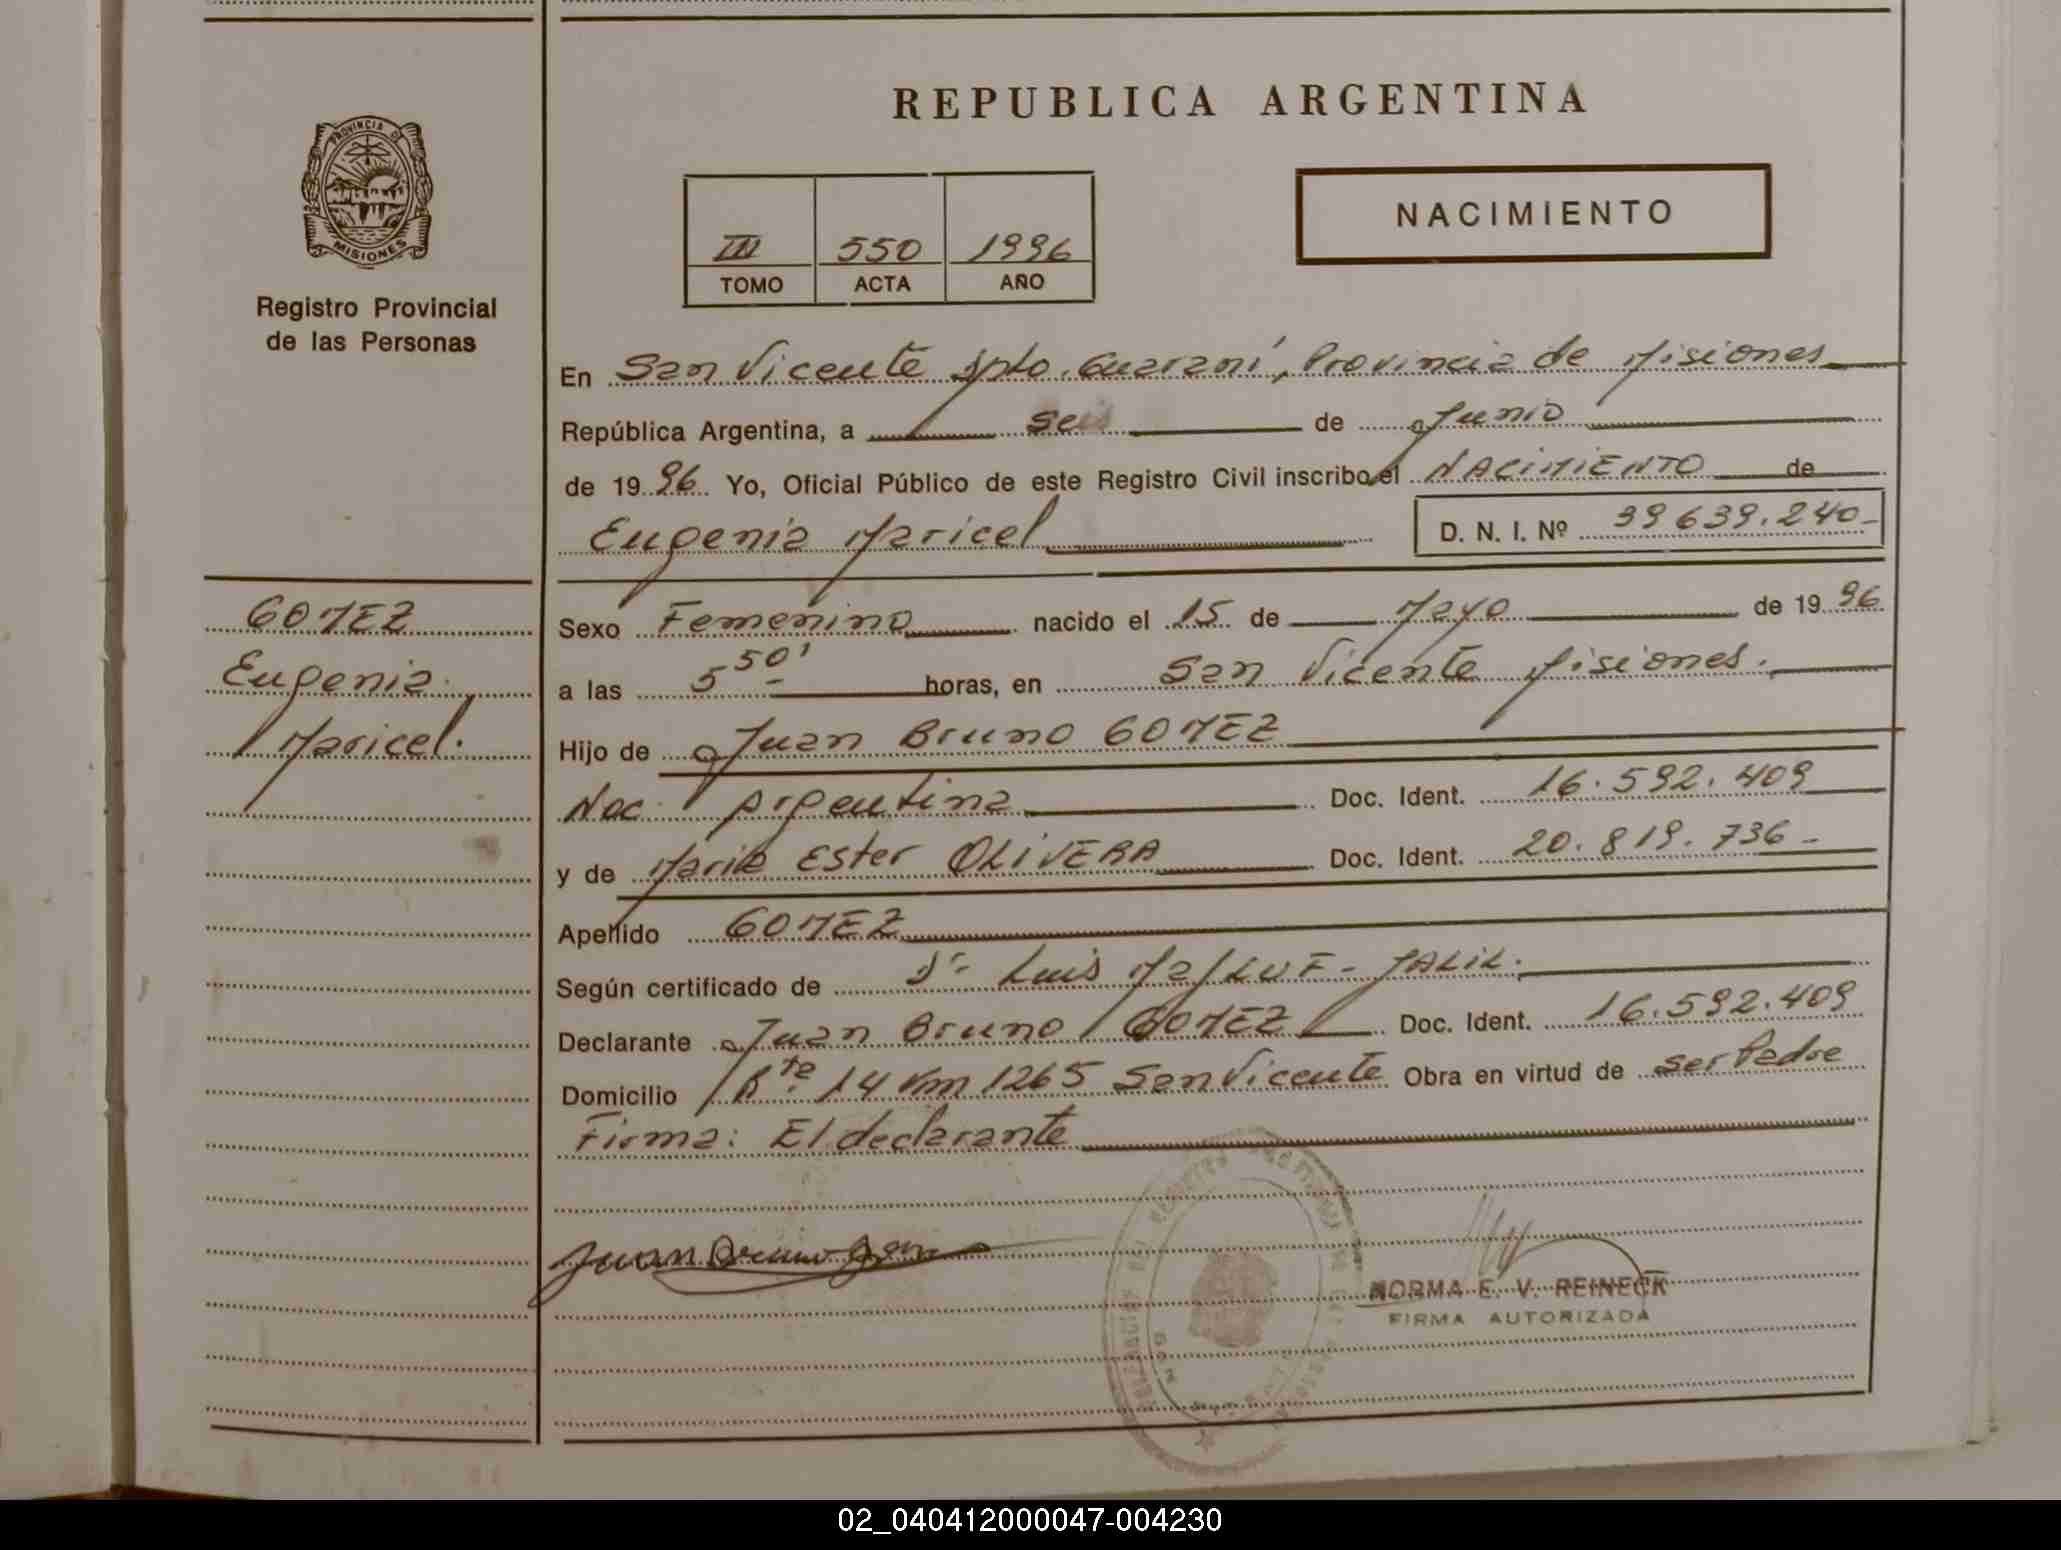 REPUBLICA ARGENTINA
PROVINCIA D
MISIONES
Registro Provincial
de las Personas
NACIMIENTO
III 550 1996
TOMO ACTA AÑO
En San Vicente Dpto. Guaraní, Provincia de Misiones
República Argentina, a seis de Junio
de 1996 Yo, Oficial Público de este Registro Civil inscribo el NACIMIENTO de
Eugenia Maricel D. N. I. Nº 39639.240-
GOMEZ
Eugenia
Maricel.
Sexo Femenino nacido el 15 de Mayo de 1996
a las 5 50' horas, en San Vicente Misiones.
Hijo de Juan Bruno GOMEZ
Nac. Argentina Doc. Ident. 16.592.409
y de Maria Ester OLIVERA Doc. Ident. 20.819.736-
Apellido GOMEZ
Según certificado de Dr. Luis JALIL.
Declarante Juan Bruno GOMEZ Doc. Ident. 16.592.409
Domicilio Rta. 14 Km 1265 San Vicente Obra en virtud de ser Padre
Firma: El declarante
Juan Bruno Gom
NORMA E. V. REINECK
FIRMA AUTORIZADA
02_040412000047-004230